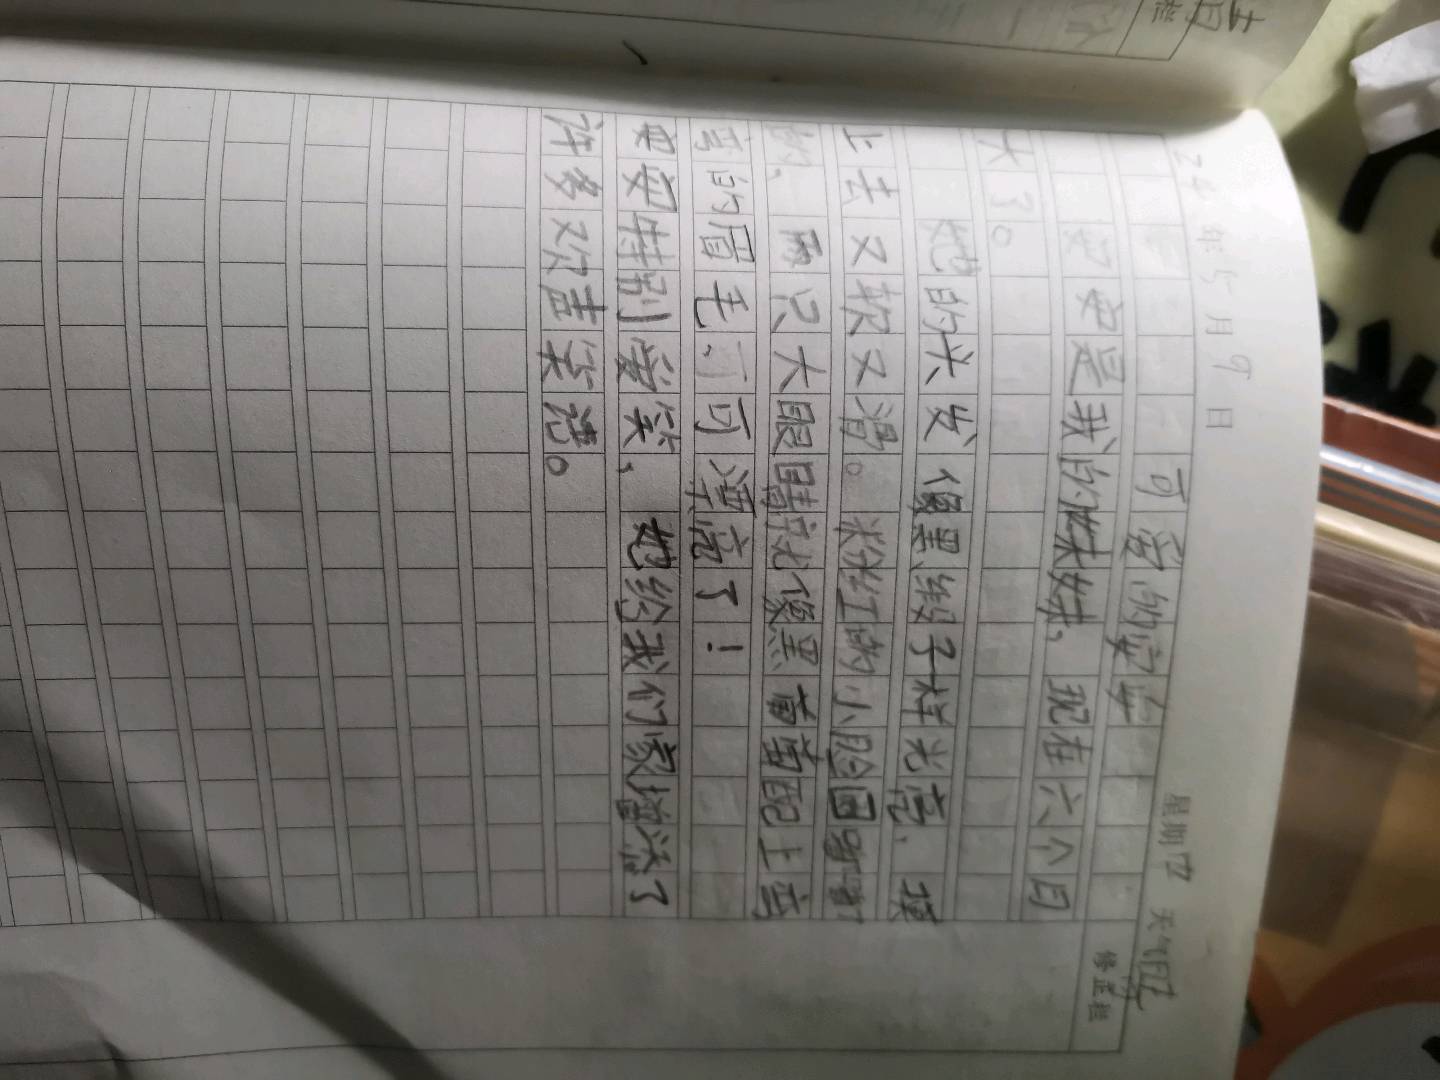 24年5月9日 星期四 天气阴
修正栏
可爱的安安
安安是我的妹妹，现在六个月
大了。
她的头发像黑缎子样光亮，摸
上去又软又滑。粉红的小脸圆嘟嘟
的，两只大眼睛就像黑葡萄配上弯
弯的眉毛，可漂亮了！
安安特别爱笑，她给我们家增添了
许多欢声笑语。